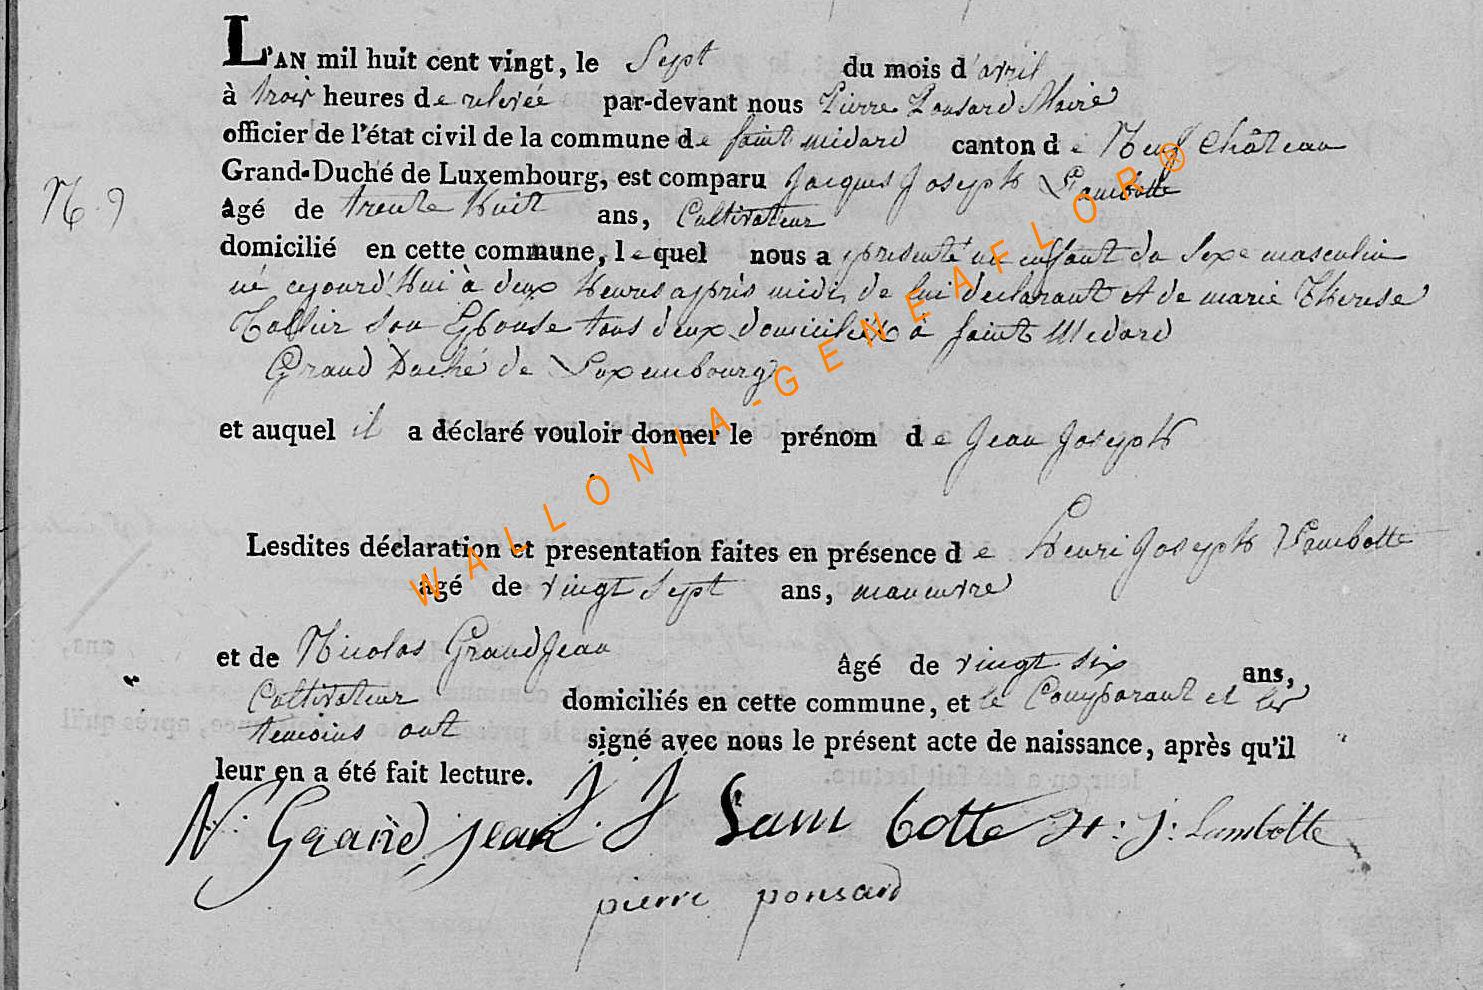 L'AN mil huit cent vingt, le Sept du mois d'avril
à trois heures de relevée par-devant nous Pierre Ponsard Maire
officier de l'état civil de la commune de Saint médard canton de Neufchâteau
Grand-Duché de Luxembourg, est comparu Jacques Joseph Lambotte
N. 9
âgé de trente huit ans, Cultivateur
domicilié en cette commune, lequel nous a presenté un enfant du Sexe masculin
né cejourd'hui à deux heures après midi, de lui declarant et de marie Therese
son Epouse tous deux domiciliés à Saint Medard
Grand Duché de Luxembourg
et auquel il a déclaré vouloir donner le prénom de Jean Joseph
Lesdites déclaration et presentation faites en présence de Henri Joseph Lambotte
âgé de vingt Sept ans, manœuvre
et de Nicolas Grandjean âgé de vingt six ans,
Cultivateur domiciliés en cette commune, et le Comparant et les
temoins ont signé avec nous le présent acte de naissance, après qu'il
leur en a été fait lecture.
N. Grandjean J. J Lambotte H. J. Lambotte
pierre ponsard
WALLONIA-GENEAFLOR®